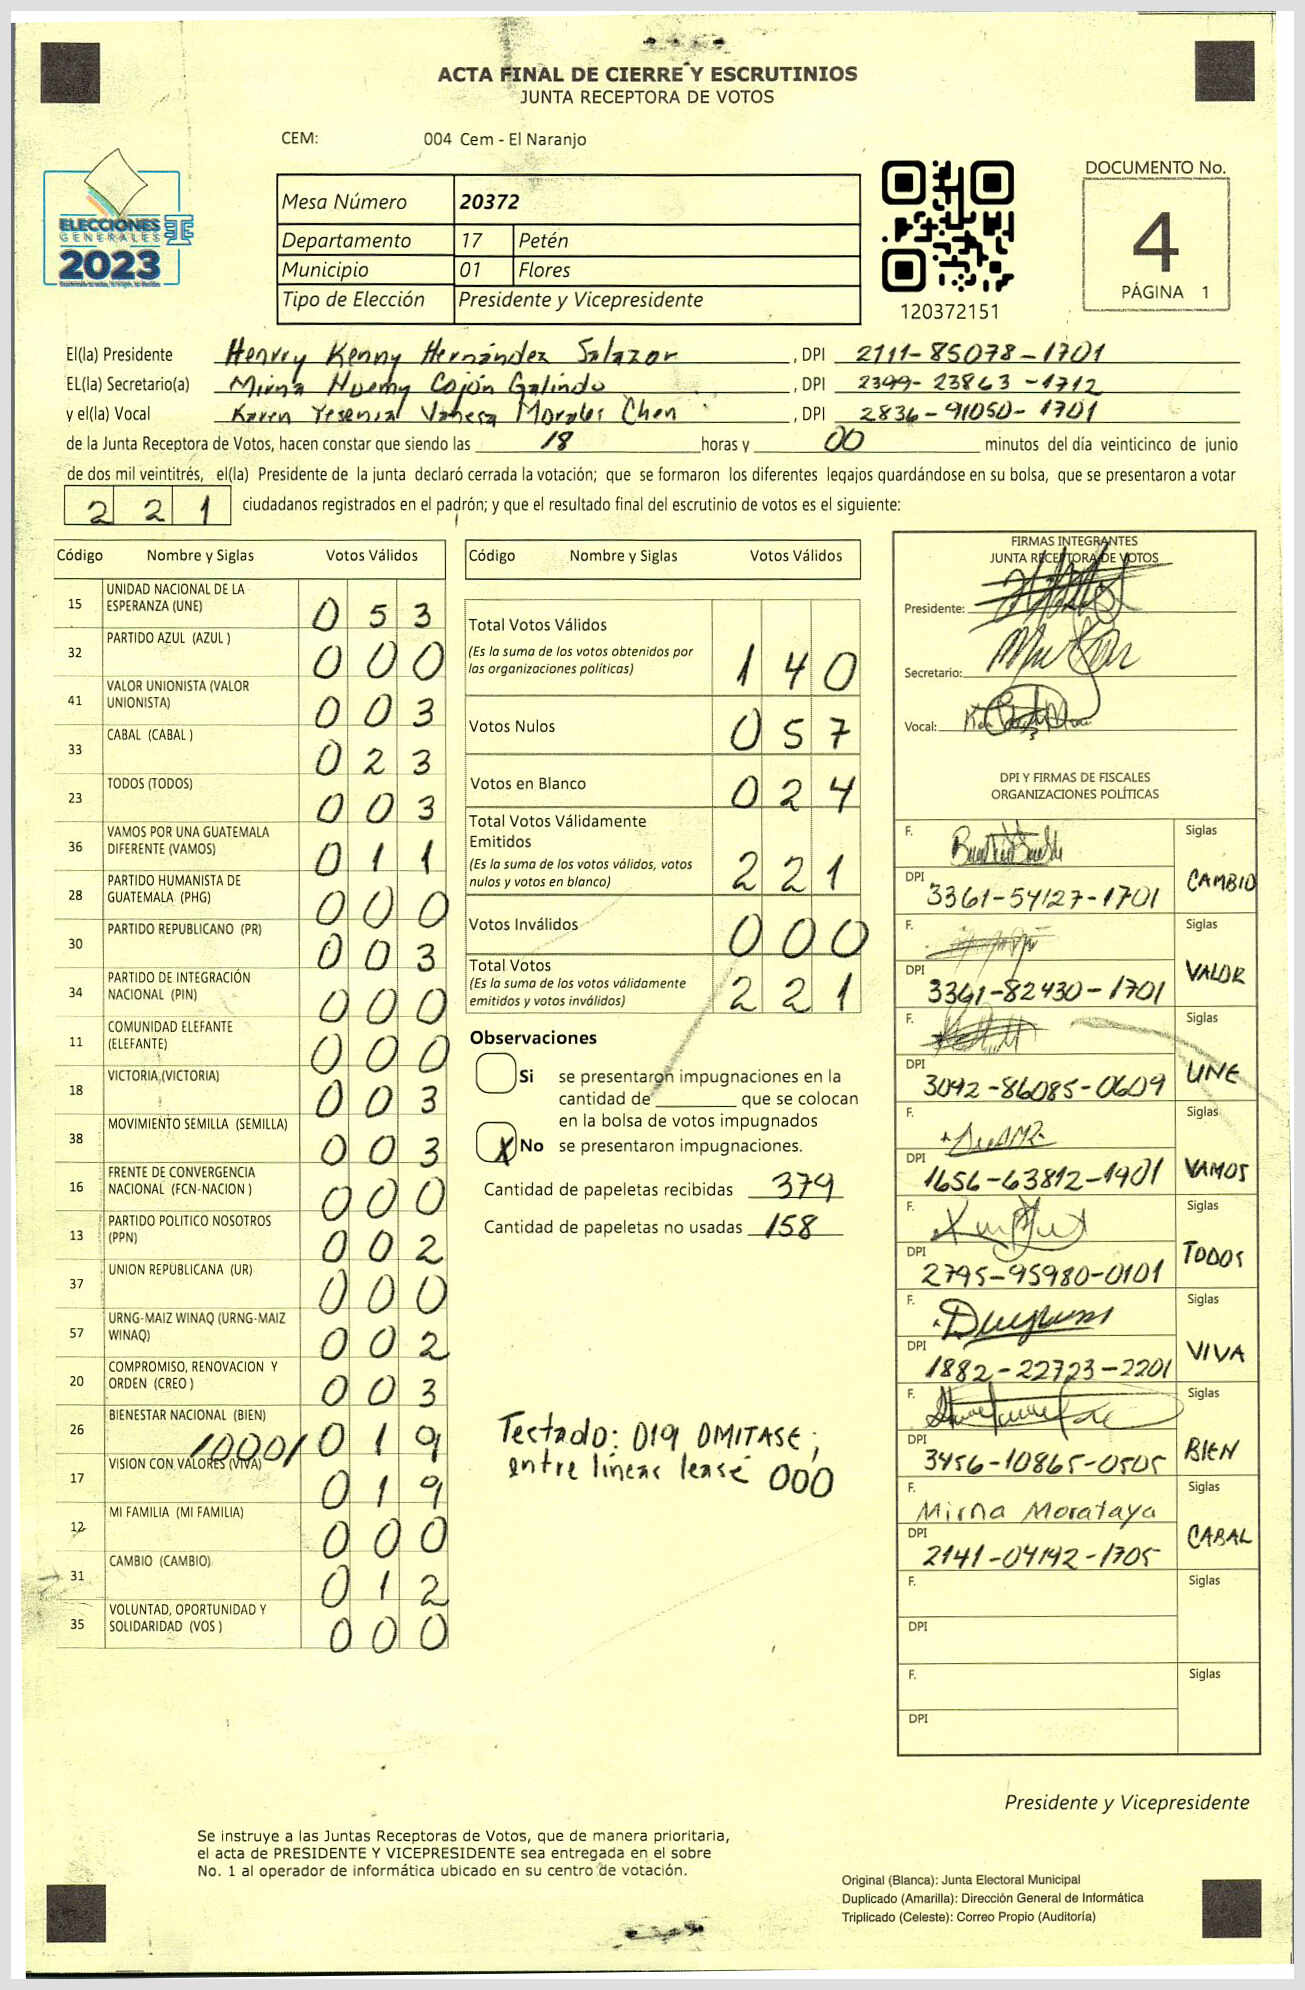 ACTA FINAL DE CIERRE Y ESCRUTINIOS
JUNTA RECEPTORA DE VOTOS
CEM: 004 Cem - El Naranjo
ELECCIONES
GENERALES
2023
Mesa Número 20372
Departamento 17 Petén
Municipio 01 Flores
Tipo de Elección Presidente y Vicepresidente
120372151
DOCUMENTO No.
4
PÁGINA 1
El(la) Presidente Henrry Kenny Hernández Salazar, DPI 2111-85078-1701
EL(la) Secretario(a) Mirna Noemy Cojón Galindo, DPI 2399-23863-1712
y el(la) Vocal Karen Yesenia Vanesa Morales Chen, DPI 2836-91050-1701
de la Junta Receptora de Votos, hacen constar que siendo las 18 horas y 00 minutos del día veinticinco de junio
de dos mil veintitrés, el(la) Presidente de la junta declaró cerrada la votación; que se formaron los diferentes legajos guardándose en su bolsa, que se presentaron a votar
221 ciudadanos registrados en el padrón; y que el resultado final del escrutinio de votos es el siguiente:
Código Nombre y Siglas Votos Válidos
15 UNIDAD NACIONAL DE LA
ESPERANZA (UNE) 053
32 PARTIDO AZUL (AZUL ) 000
41 VALOR UNIONISTA (VALOR
UNIONISTA) 003
33 CABAL (CABAL ) 023
23 TODOS (TODOS) 003
36 VAMOS POR UNA GUATEMALA
DIFERENTE (VAMOS) 011
28 PARTIDO HUMANISTA DE
GUATEMALA (PHG) 000
30 PARTIDO REPUBLICANO (PR) 003
34 PARTIDO DE INTEGRACIÓN
NACIONAL (PIN) 000
11 COMUNIDAD ELEFANTE
(ELEFANTE) 000
18 VICTORIA (VICTORIA) 003
38 MOVIMIENTO SEMILLA (SEMILLA) 003
16 FRENTE DE CONVERGENCIA
NACIONAL (FCN-NACION ) 000
13 PARTIDO POLITICO NOSOTROS
(PPN) 002
37 UNION REPUBLICANA (UR) 000
57 URNG-MAIZ WINAQ (URNG-MAIZ
WINAQ) 002
20 COMPROMISO, RENOVACION Y
ORDEN (CREO ) 003
26 BIENESTAR NACIONAL (BIEN)
/000/ 019
17 VISION CON VALORES (VIVA) 019
12 MI FAMILIA (MI FAMILIA) 000
31 CAMBIO (CAMBIO) 012
35 VOLUNTAD, OPORTUNIDAD Y
SOLIDARIDAD (VOS ) 000
Código Nombre y Siglas Votos Válidos
Total Votos Válidos
(Es la suma de los votos obtenidos por
las organizaciones políticas) 140
Votos Nulos 057
Votos en Blanco 024
Total Votos Válidamente
Emitidos
(Es la suma de los votos válidos, votos
nulos y votos en blanco) 221
Votos Inválidos 000
Total Votos
(Es la suma de los votos válidamente
emitidos y votos inválidos) 221
Observaciones
Si se presentaron impugnaciones en la
cantidad de ________ que se colocan
en la bolsa de votos impugnados
X No se presentaron impugnaciones.
Cantidad de papeletas recibidas 379
Cantidad de papeletas no usadas 158
Tectado: 019 OMITASE;
entre líneas lease 000
FIRMAS INTEGRANTES
JUNTA RECEPTORA DE VOTOS
Presidente:
Secretario:
Vocal:
DPI Y FIRMAS DE FISCALES
ORGANIZACIONES POLÍTICAS
F. Siglas
DPI 3361-54127-1701 CAMBIO
F. Siglas
DPI 3361-82430-1701 VALOR
F. Siglas
DPI 3092-86085-0609 UNE
F. Siglas
DPI 1656-63812-1901 VAMOS
F. Siglas
DPI 2795-95980-0101 TODOS
F. Siglas
DPI 1882-22723-2201 VIVA
F. Siglas
DPI 3456-10865-0505 BIEN
F. Mirna Morataya Siglas
DPI 2141-04142-1705 CABAL
F. Siglas
DPI
F. Siglas
DPI
Presidente y Vicepresidente
Se instruye a las Juntas Receptoras de Votos, que de manera prioritaria,
el acta de PRESIDENTE Y VICEPRESIDENTE sea entregada en el sobre
No. 1 al operador de informática ubicado en su centro de votación.
Original (Blanca): Junta Electoral Municipal
Duplicado (Amarilla): Dirección General de Informática
Triplicado (Celeste): Correo Propio (Auditoría)